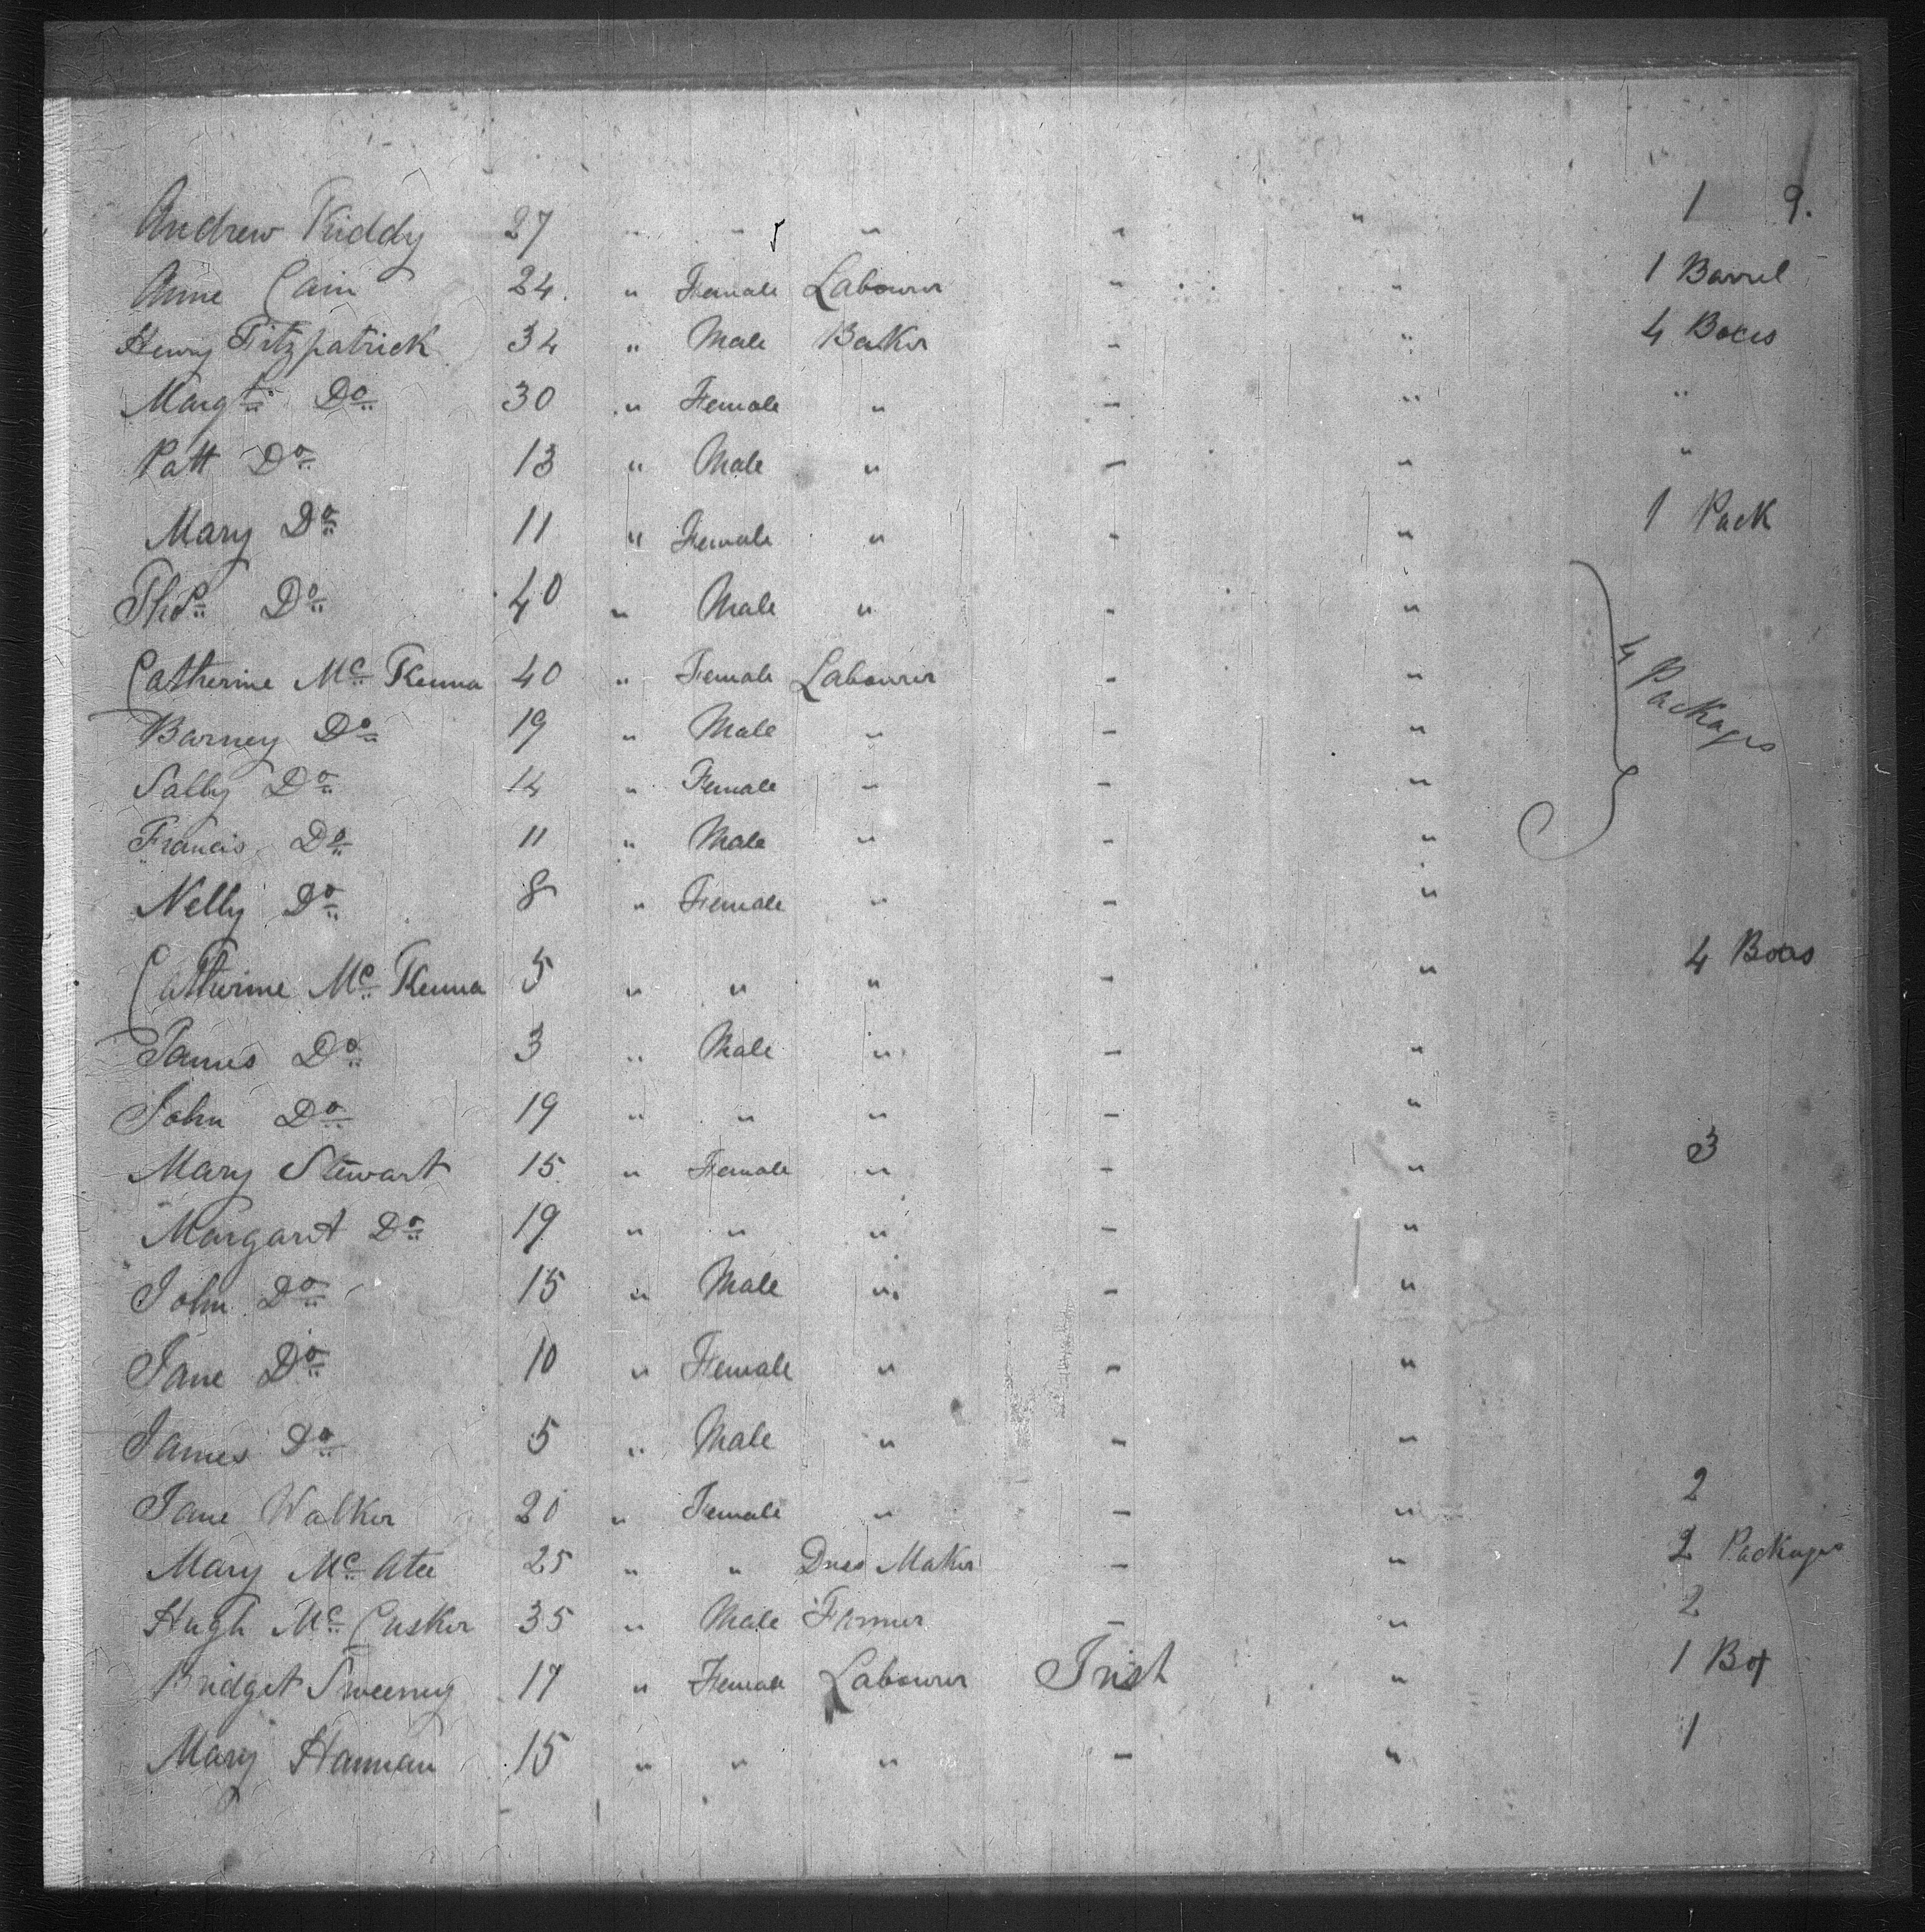 Andrew Kiddy 27 " " " " " 1 9.
Anne Cain 24 " Female Labourer " " 1 Barrel
Henry Fitzpatrick 34 " Male Baker " " 4 Boxes
Margt Do 30 " Female " " " "
Patt Do 13 " Male " " " "
Mary Do 11 " Female " " " 1 Pack
Thos Do 40 " Male " " "
Catherine Mc Kenna 40 " Female Labourer " "
4 Packages
Barney Do 19 " Male " " "
Sally Do 14 " Female " " "
Francis Do 11 " Male " " "
Nelly Do 8 " Female " " "
Catherine Mc Kenna 5 " " " " " 4 Boxes
James Do 3 " Male " " "
John Do 19 " " " " "
Mary Stewart 15 " Female " " " 3
Margaret Do 19 " " " " "
John Do 15 " Male " " "
Jane Do 10 " Female " " "
James Do 5 " Male " " "
Jane Walker 20 " Female " " " 2
Mary Mc Atee 25 " " Dress Maker " " 2 Packages
Hugh Mc Cusker 35 " Male Farmer " " 2
Bridget Sweeney 17 " Female Labourer Irish " 1 Box
Mary Hannan 15 " " " " " 1